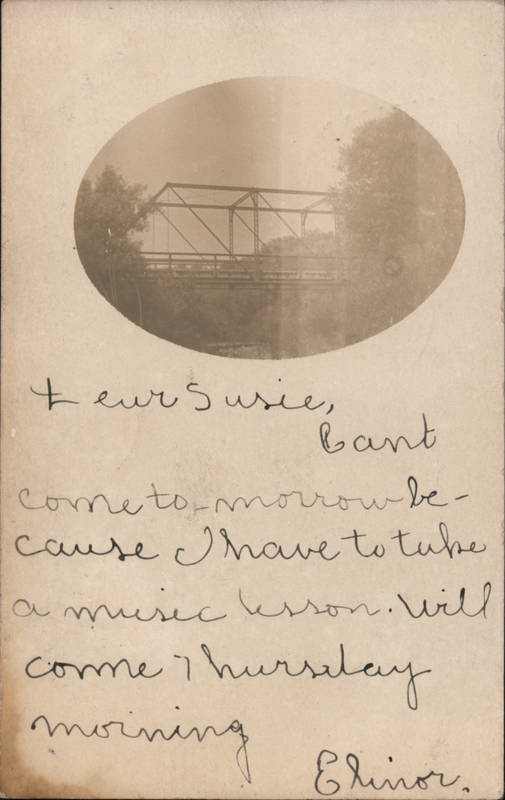 Dear Susie,
Cant
come to-morrow be-
cause I have to take
a music lesson. Will
come Thursday
morning
Elinor.